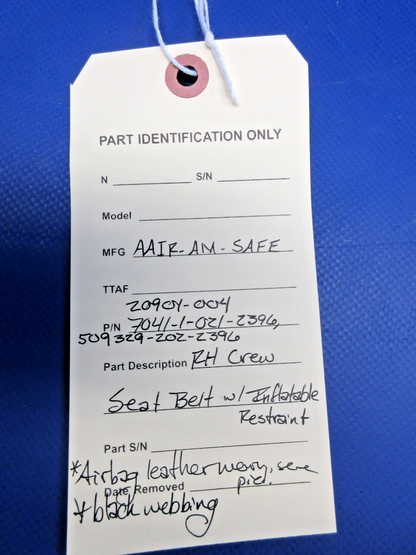 PART IDENTIFICATION ONLY
N ____________ S/N ____________
Model ____________
MFG AAIR-AM-SAFE
TTAF ____________
20904-004
P/N 7041-1-021-2396,
509329-202-2396
Part Description RH Crew
Seat Belt w/ Inflatable
Restraint
Part S/N ____________
*Airbag leather worn, see
Date Removed pic.
* black webbing